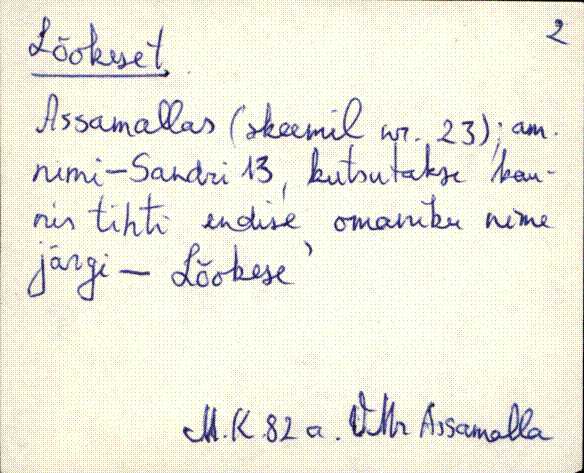 2
Lõokeset
Assamallas (skeemil nr. 23); am.
nimi - Sandri 13, kutsutakse
tihti endise omaniku nime
järgi - Lõokese
M.K. 82 a. VMr Assamalla